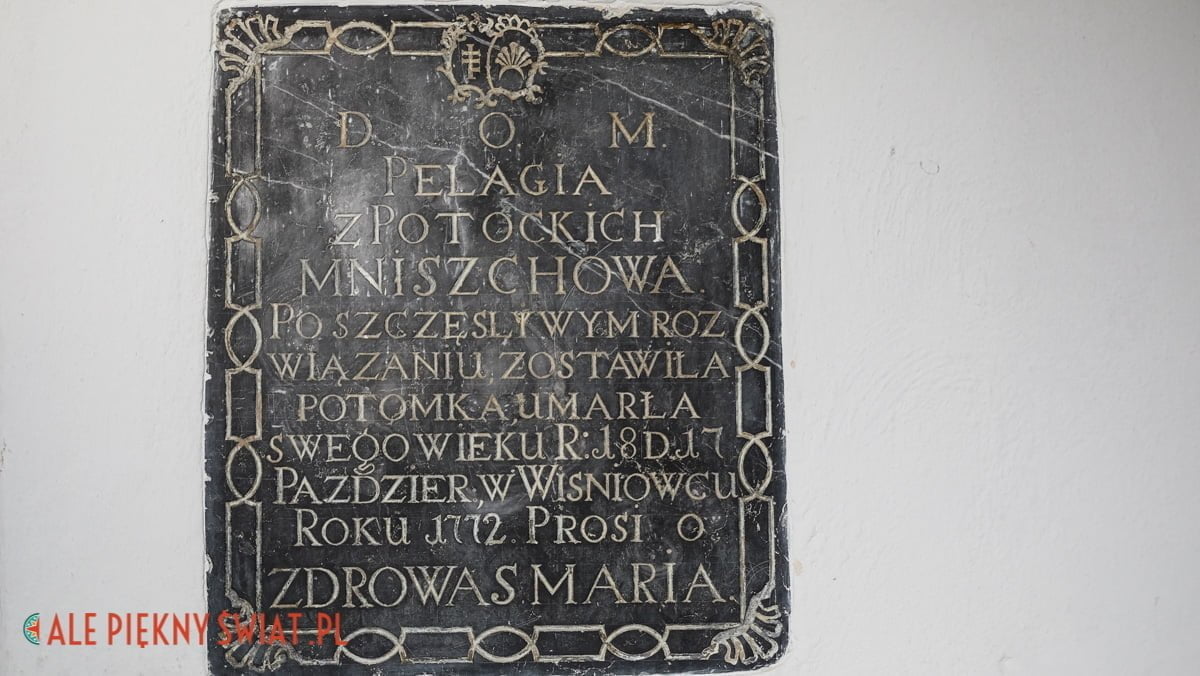 D. O M.
PELAGIA
Z POTOCKICH
MNISZCHOWA.
PO SZCZĘSLYWYM ROZ
WIĄZANIU, ZOSTAWIŁA
POTOMKA, UMARŁA
SWEGO WIEKU R: 18 D. 17
PAŹDZIER:, W WISNIOWCU
ROKU 1772. PROSI O
ZDROWAS MARIA.
ALE PIĘKNY ŚWIAT.PL